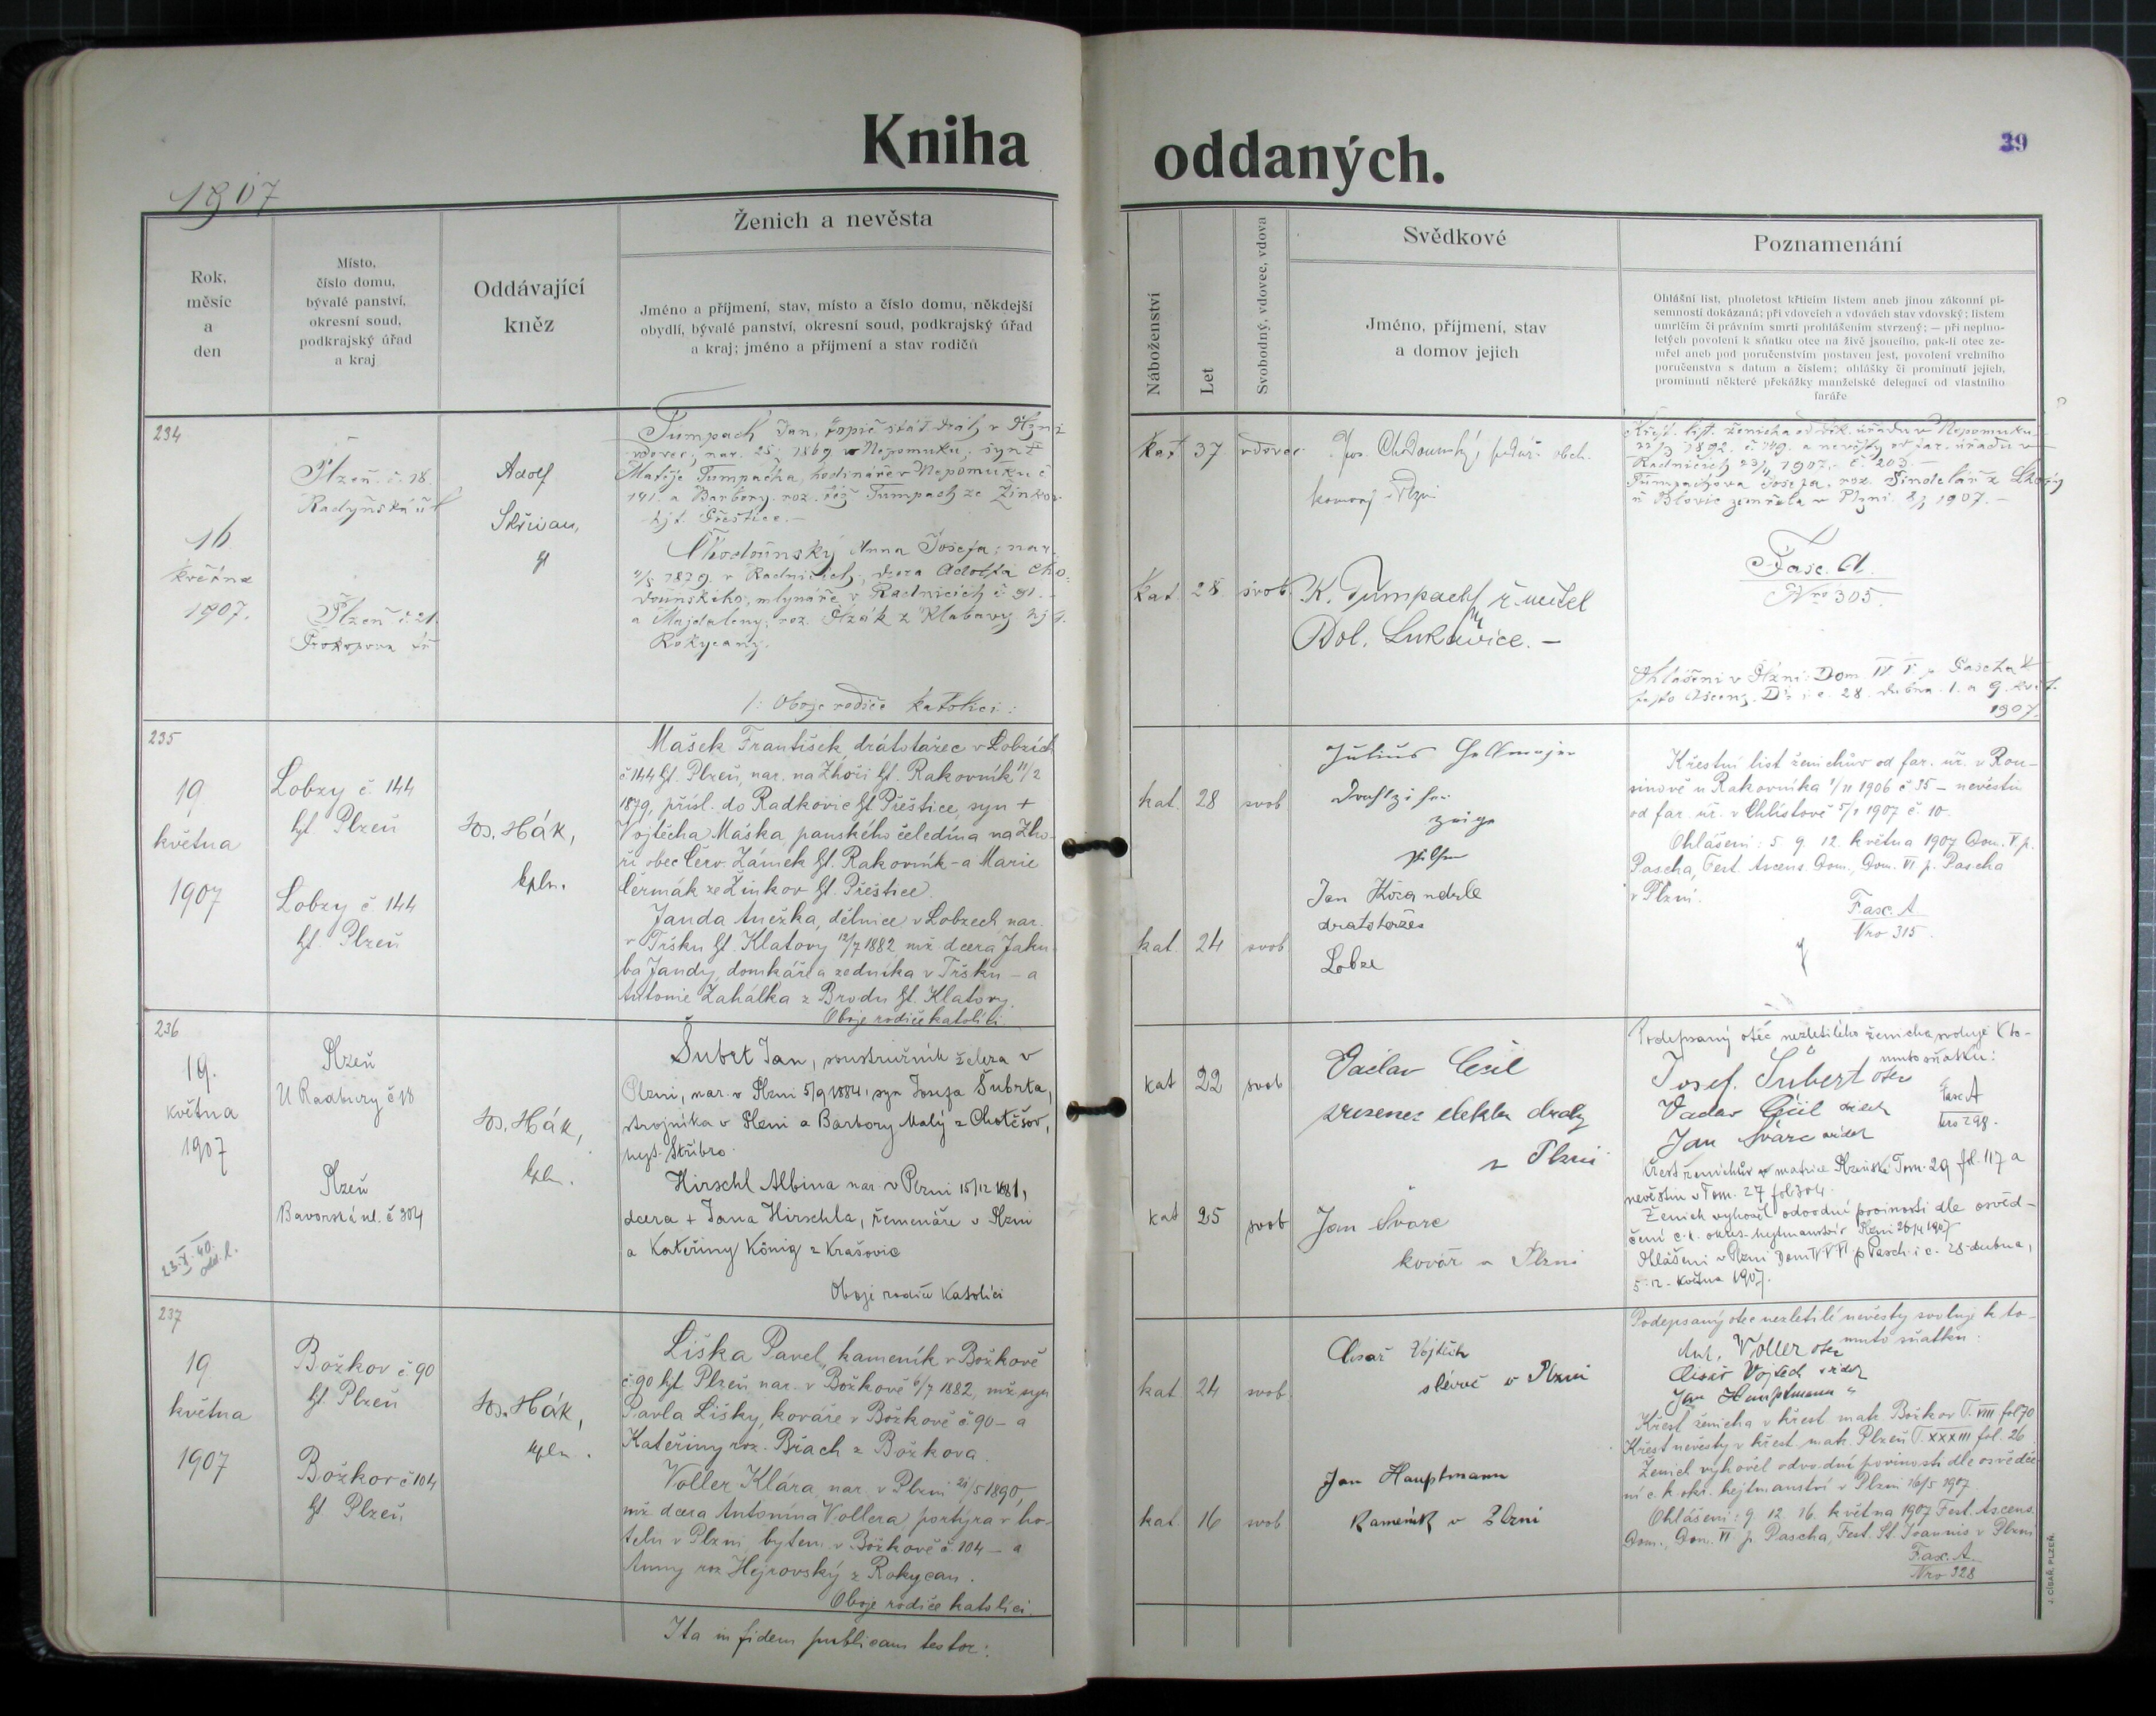 Kniha oddaných.
39
1907
Rok,
měsíc
a
den
Místo,
číslo domu,
bývalé panství,
okresní soud,
podkrajský úřad
a kraj
Oddávající
kněz
Ženich a nevěsta
Jméno a příjmení, stav, místo a číslo domu, někdejší
obydlí, bývalé panství, okresní soud, podkrajský úřad
a kraj; jméno a příjmení a stav rodičů
Náboženství
Let
Svobodný, vdovec, vdova
Svědkové
Jméno, příjmení, stav
a domov jejich
Poznamenání
Ohlášní list, plnoletost křticím listem aneb jinou zákonní pí-
semností dokázaná; při vdovcích a vdovách stav vdovský; listem
umrlčím či právním smrti prohlášením stvrzený; — při neplno-
letých povolení k sňatku otce na živě jsoucího, pak-li otec ze-
mřel aneb pod poručenstvím postaven jest, povolení vrchního
poručenstva s datum a číslem; ohlášky či prominutí jejich,
prominutí některé překážky manželské delegací od vlastního
faráře
234
16
května
1907.
Plzeň č. 18.
Radyňská ul
Plzeň č. 21.
Prokopova tř
Adolf
Skřivan,
Tumpach Jan, topič stát. dráhy v Plzni
vdovec; nar. 1869 v Nepomuku; syn
Matěje Tumpacha, hodináře v Nepomuku č
141. a Barbory roz. též Tumpach ze Žinkov
hjt. Přeštice.—
Chodounský Anna Josefa; nar.
1879. v Radnicích, dcera Adolfa Cho-
dounského, mlynáře v Radnicích č 91.
a Magdaleny, roz. Plzák z Klabavy hjt.
Rokycany.
/: Oboje rodiče katolíci :
kat 37 vdovec
kat. 28 svob.
Jos. Chodounský, obch.
komory v Plzni
K. Tumpach ř. učitel
Dol. Lukavice. —
Křest. list. ženicha od děk. úřadu v Nepomuku
1892. č. 149. a nevěsty od far. úřadu v
Radnicích 1907. č. 203.—
Tumpachova Josefa, roz. Šindelář z
u Blovic zemřela v Plzni 1907. —
Fasc. A.
Nro 305.
Ohlášeni v Plzni: Dom. IV V. p Pascha
festo Ascens. D: i. e. 28. dubna. 1. a 9. květ.
1907.
235
19
května
1907
Lobzy č. 144
hjt. Plzeň
Lobzy č 144
hjt. Plzeň
Jos. Hák,
kpln.
Mašek František, drátotařec v Lobzích
č 144 hjt. Plzeň, nar. na Zhoři hjt. Rakovník 11/2
1879, přísl. do Radkovic hjt Přeštice, syn +
Vojtěcha Máška, panského čeledína na Zho-
ři obec Červ. Zámek hjt. Rakovník - a Marie
Čermák ze Žinkov hjt. Přeštice.
Janda Anežka, dělnice v Lobzech, nar.
v Tršku hjt. Klatovy 12/7 1882 mž. dcera Jaku-
ba Jandy, domkáře a zedníka v Tršku - a
Antonie Zahálka z Brodu hjt. Klatovy.
Oboje rodiče katolíci.
kat. 28 svob
kat. 24 svob
Julius
Jan
dratotařec
Lobze
Křestní list ženichův od far. úř. v Rou-
sinově u Rakovníka 1/11 1906 č 35 - nevěstin
od far. úř. v Chlístově 5/1 1907 č. 10.
Ohlášeni: 5. 9. 12. května 1907 Dom. V p.
Pascha, Fest. Ascens. Dom., Dom. VI p. Pascha
v Plzni.
Fasc. A
Nro 315.
236
19.
května
1907
Plzeň
U Radbuzy č 18
Plzeň
Bavorská ul. č 304
Jos. Hák,
kpln.
Šubrt Jan, soustružník železa v
Plzni, nar. v Plzni 5/9 1884, syn Josefa Šubrta,
strojníka v Plzni a Barbory Malý z Chotěšov,
hejt. Stříbro.
Hirschl Albina nar. v Plzni 15/12 1881,
dcera + Jana Hirschla, řemenáře v Plzni
a Kateřiny König z Krašovic
Oboji rodiče Katolíci
kat 22 svob
kat 25 svob
Václav Cecil
zřízenec elektr. dráhy
v Plzni
Jan Švarc
kovář v Plzni
Podepsaný otec nezletilého ženicha svoluje k to-
muto sňatku:
Josef Šubert otec
Václav Cecil svědek
Jan Švarc svědek
Fasc A
Nro 298.
Křest ženichův v matrice Plzeňské Tom. 29 fol. 117 a
nevěstin v Tom. 27 fol 304.
Ženich vyhověl odvodní povinnosti dle osvěd-
čení c. k. okres. hejtmanství v Plzni 26/4 1907
Ohlášeni v Plzni Dom IV V VI p Pasch. i e. 28 dubna,
5. 12. května 1907.
237
19
května
1907
Božkov č 90
hjt. Plzeň
Božkov č 104
hjt. Plzeň
Jos. Hák,
kpln.
Liška Pavel, kameník v Božkově
č 90 hjt. Plzeň, nar. v Božkově 6/7 1882, mž syn
Pavla Lišky, kováře v Božkově č. 90 - a
Kateřiny roz. Brach z Božkova.
Voller Klára, nar. v Plzni 21/5 1890,
mž dcera Antonína Vollera, portýra v ho-
telu v Plzni, bytem v Božkově č. 104 - a
Anny roz Hejrovský z Rokycan.
Oboje rodiče katolíci.
kat. 24 svob.
kat. 16 svob
Cisař Vojtěch
slévač v Plzni
Jan Hauptmann
Kameník v Plzni
Podepsaný otec nezletilé nevěsty svoluje k to-
muto sňatku:
Ant. Voller otec
Cisař Vojtěch svědek
Jan Hauptmann "
Křest ženicha v křest. matr. Božkov T. VIII fol 70
Křest nevěsty v křest. matr. Plzeň T. XXXIII fol. 26
Ženich vyhověl odvodní povinosti dle osvědče-
ní c. k. okr. hejtmanství v Plzni 16/5 1907.
Ohlášeni: 9. 12. 16. května 1907 Fest. Ascens.
Dom., Dom. VI p. Pascha, Fest. St. Joannis v Plzni
Fasc. A.
Nro 328
Ita in fidem publicam testor:
J. CÍSAŘ, PLZEŇ.